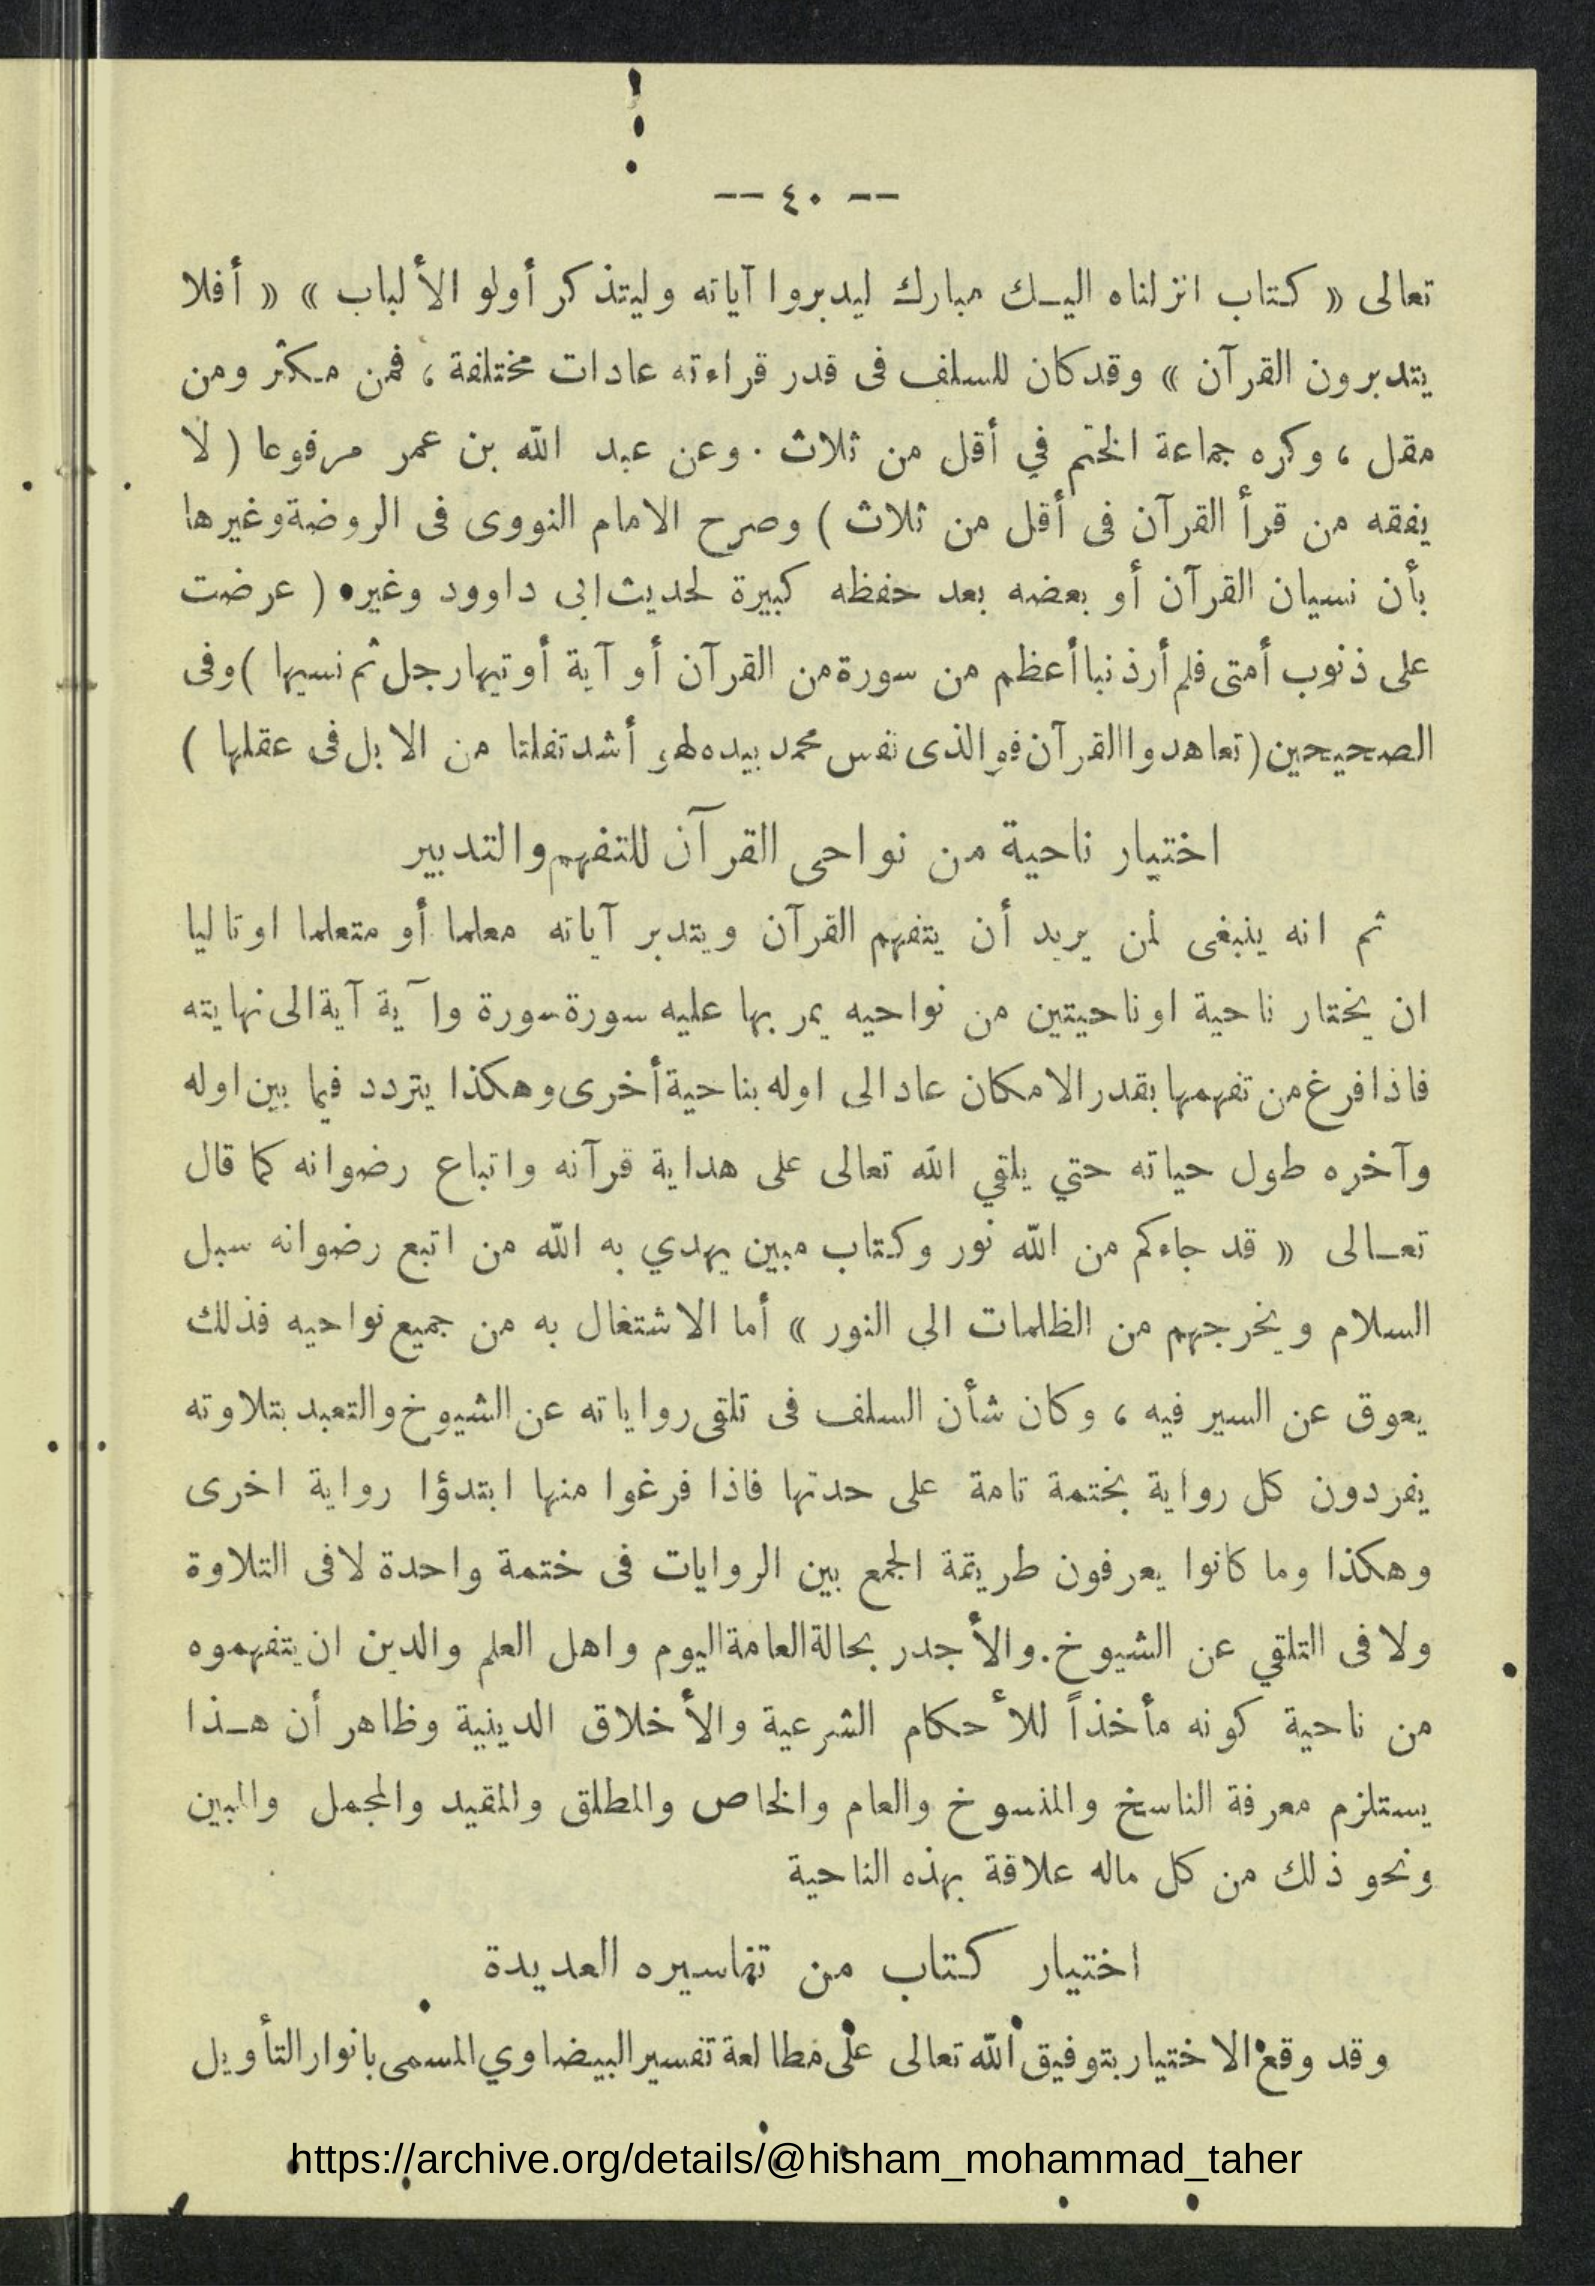 -- ٤٠ --
تعالى « كتاب انزلناه اليـك مبارك ليدبروا آياته وليتذكر أولو الألباب » « أفلا
يتدبرون القرآن » وقد كان للسلف فى قدر قراءته عادات مختلفة ، فمن مكثر ومن
مقل ، وكره جماعة الختم في أقل من ثلاث . وعن عبد الله بن عمر مرفوعا ( لا
يفقه من قرأ القرآن فى أقل من ثلاث ) وصرح الامام النووى فى الروضة وغيرها
بأن نسيان القرآن أو بعضه بعد حفظه كبيرة لحديث ابى داوود وغيره ( عرضت
على ذنوب أمتى فلم أر ذنبا أعظم من سورة من القرآن أو آية أوتيها رجل ثم نسيها ) وفى
الصحيحين ( تعاهدوا القرآن فو الذى نفس محمد بيده لهو أشد تفلتا من الابل فى عقلها )
اختيار ناحية من نواحى القرآن للتفهم والتدبير
ثم انه ينبغى لمن يريد أن يتفهم القرآن ويتدبر آياته معلما أو متعلما او تاليا
ان يختار ناحية او ناحيتين من نواحيه يمر بها عليه سورة سورة وآية آية الى نهايته
فاذا فرغ من تفهمها بقدر الامكان عاد الى اوله بناحية أخرى وهكذا يتردد فيما بين اوله
وآخره طول حياته حتي يلقي الله تعالى على هداية قرآنه واتباع رضوانه كما قال
تعـالى « قد جاءكم من الله نور وكتاب مبين يهدي به الله من اتبع رضوانه سبل
السلام ويخرجهم من الظلمات الي النور » أما الاشتغال به من جميع نواحيه فذلك
يعوق عن السير فيه ، وكان شأن السلف فى تلقى رواياته عن الشيوخ والتعبد بتلاوته
يفردون كل رواية بختمة تامة على حدتها فاذا فرغوا منها ابتدؤا رواية اخرى
وهكذا وما كانوا يعرفون طريقة الجمع بين الروايات فى ختمة واحدة لا فى التلاوة
ولا فى التلقي عن الشيوخ. والأجدر بحالة العامة اليوم واهل العلم والدين ان يتفهموه
من ناحية كونه مأخذاً للأحكام الشرعية والأخلاق الدينية وظاهر أن هـذا
يستلزم معرفة الناسخ والمنسوخ والعام والخاص والمطلق والمقيد والمجمل والمبين
ونحو ذلك من كل ماله علاقة بهذه الناحية
اختيار كتاب من تفاسيره العديدة
وقد وقع الاختيار بتوفيق الله تعالى على مطالعة تفسير البيضاوي المسمى بانوار التأويل
https://archive.org/details/@hisham_mohammad_taher